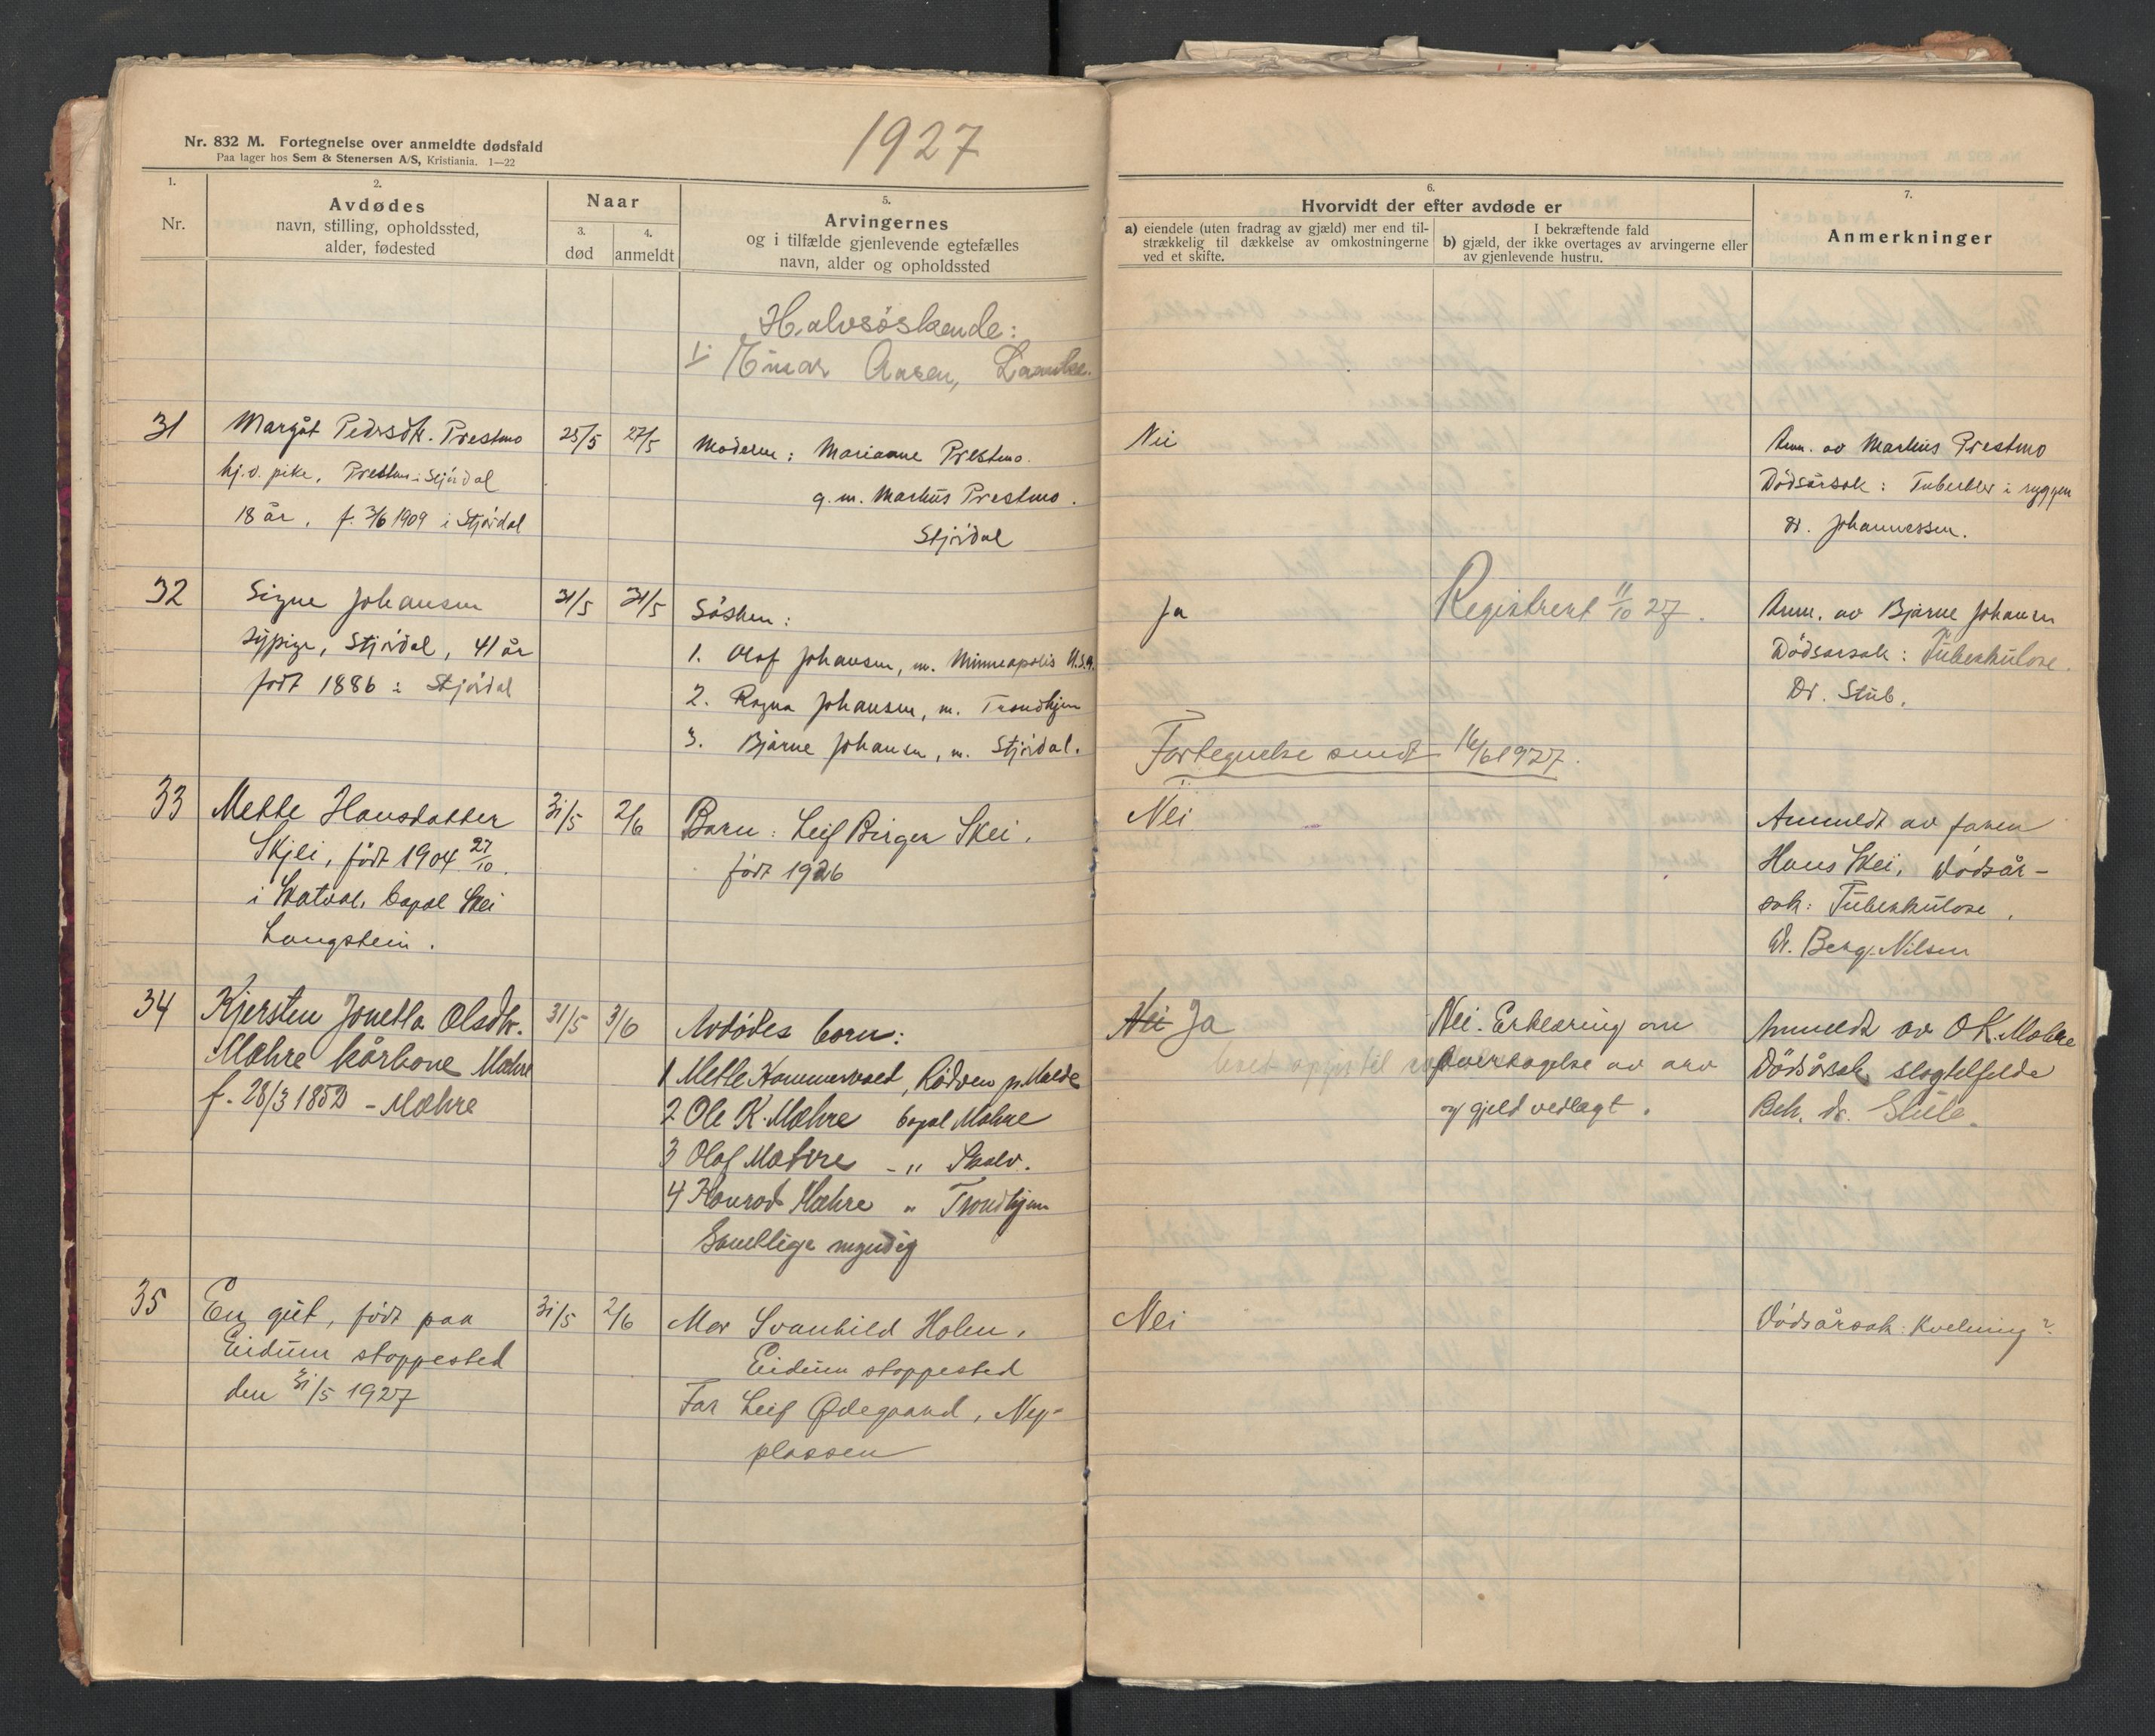 Nr. 832 M. Fortegnelse over anmeldte dødsfald
Paa lager hos Sem & Stenersen A/S, Kristiania. 1—22
1927
1.
Nr.
2.
Avdødes
navn, stilling, opholdssted,
alder, fødested
Naar
3.
død
4.
anmeldt
5.
Arvingernes
og i tilfælde gjenlevende egtefælles
navn, alder og opholdssted
6.
Hvorvidt der efter avdøde er
a) eiendele (uten fradrag av gjæld) mer end til-
strækkelig til dækkelse av omkostningerne
ved et skifte.
I bekræftende fald
b) gjæld, der ikke overtages av arvingerne eller
av gjenlevende hustru.
7.
Anmerkninger
Halvsøskende:
1. Einar Aasen, Laanke.
31
Margåt Pedersdtr. Prestmo
hj.v. pike, Prestmo i Stjørdal
18 år, f. 3/6 1909 i Stjørdal
25/5
27/5
Moderen: Marianne Prestmo.
g.m. Markus Prestmo.
Stjørdal
Nei
Anm. av Markus Prestmo
Dødsårsak: Tuberkler i ryggen
dr. Johannessen.
32
Signe Johansen
sypige, Stjørdal, 41 år
født 1886 i Stjørdal
31/5
31/5
Søsken:
1. Olaf Johansen, m. Minneapolis U.S.A.
2. Ragna Johansen, m. Trondhjem
3. Bjarne Johansen, m. Stjørdal.
Ja
Registrert 11/10 27.
Anm. av Bjarne Johansen
Dødsarsak: Tuberkulose.
Dr. Stub.
Fortegnelse sendt 16/6 1927.
33
Mette Hansdatter
Skjei, født 1904 27/10.
i Skatval. bopæl Skei
Langstein.
31/5
2/6
Barn: Leif Birger Skei.
født 1926
Nei
Anmeldt av faren
Hans Skei, Dødsår-
sak: Tuberkulose.
Dr. Berg-Nilsen
34
Kjersten Jonetta Olsdtr.
Mæhre kårkone Mæhre
f. 28/3 1853 - Mæhre
31/5
3/6
Avdødes born:
1 Mette Hammervoet, Rødven p. Molde
2 Ole K. Mæhre bopæl Mæhre
3 Olaf Mæhre -„ Skatv.
4 Konrad Mæhre „ Trondhjem
Samtlige myndig
Nei Ja
Nei. Erklæring om
overtagelse av arv
og gjeld vedlagt.
Anmeldt av O K. Mæhre
Dødsårsak slagtilfelde
Beh. dr. Stub.
35
En gut, født paa
Eidum stoppested
den 31/5 1927
31/5
2/6
Mor Svanhild Holen.
Eidum stoppested
Far Leif Ødegaard, Ney-
plassen
Nei
Dødsårsak: Kvelning?